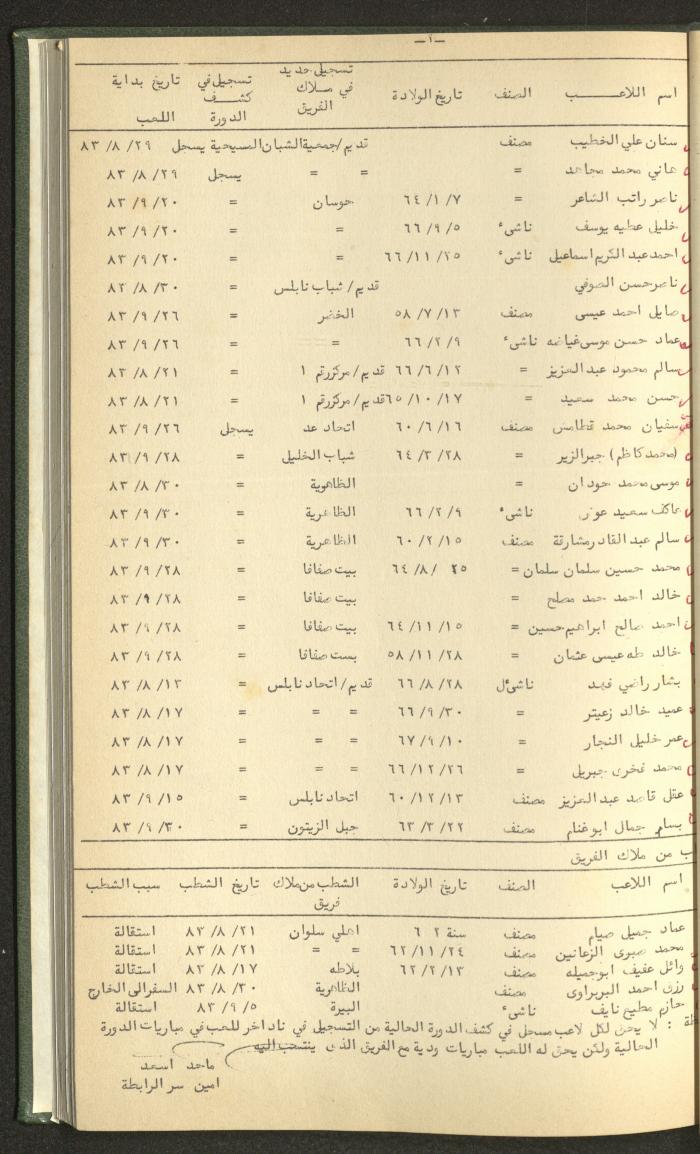 -١-
اسم اللاعب الصنف تاريخ الولادة تسجيل جديد في ملاك الفريق تسجيل في كشف الدورة تاريخ بداية اللعب
سنان علي الخطيب مصنف قديم/جمعية الشبان المسيحية يسجل ٢٩/ ٨/ ٨٣
هاني محمد مجاهد = = = يسجل ٢٩/ ٨/ ٨٣
ناصر راتب الشاعر = ٧/ ١/ ٦٤ حوسان = ٢٠/ ٩/ ٨٣
خليل عطيه يوسف ناشىء ٥/ ٩/ ٦٦ = = ٢٠/ ٩/ ٨٣
احمد عبد الكريم اسماعيل ناشىء ٢٥/ ١١/ ٦٦ = = ٢٠/ ٩/ ٨٣
ناصر حسن الصوفي قديم/ شباب نابلس = ٣٠/ ٨/ ٨٣
صايل احمد عيسى مصنف ١٣/ ٧/ ٥٨ الخضر = ٢٦/ ٩/ ٨٣
عماد حسن موسى غياضه ناشىء ٩/ ٢/ ٦٦ = = ٢٦/ ٩/ ٨٣
سالم محمود عبد العزيز = ١٢/ ٦/ ٦٦ قديم/ مركز رقم ١ = ٢١/ ٨/ ٨٣
حسن محمد سعيد = ١٧/ ١٠/ ٦٥ قديم/ مركز رقم ١ = ٢١/ ٨/ ٨٣
سفيان محمد قطامش مصنف ١٦/ ٦/ ٦٠ اتحاد عد يسجل ٢٦/ ٩/ ٨٣
(محمد كاظم) جبر الزير = ٢٨/ ٣/ ٦٤ شباب الخليل = ٢٨/ ٩/ ٨٣
موسى محمد حودان = الظاهرية = ٣٠/ ٨/ ٨٣
عاكف سعيد عوض ناشىء ٩/ ٢/ ٦٦ الظاهرية = ٣٠/ ٩/ ٨٣
سالم عبد القادر مشارقة مصنف ١٥/ ٢/ ٦٠ الظاهرية = ٣٠/ ٩/ ٨٣
محمد حسين سلمان سلمان = ٢٥ /٨/ ٦٤ بيت صفافا = ٢٨/ ٩/ ٨٣
خالد احمد حمد مصلح = بيت صفافا = ٢٨/ ٩/ ٨٣
احمد صالح ابراهيم حسين = ١٥/ ١١/ ٦٤ بيت صفافا = ٢٨/ ٩/ ٨٣
خالد طه عيسى عثمان = ٢٨/ ١١/ ٥٨ بست صفافا = ٢٨/ ٩/ ٨٣
بشار راضي فهد ناشىل ٢٨/ ٨/ ٦٦ قديم/ اتحاد نابلس = ١٣/ ٨/ ٨٣
عميد خالد زعيتر = ٣٠/ ٩/ ٦٦ = = = ١٧/ ٨/ ٨٣
عمر خليل النجار = ١٠/ ٩/ ٦٧ = = = ١٧/ ٨/ ٨٣
محمد فخرى جبريل = ٢٦/ ١٢/ ٦٦ = = = ١٧/ ٨/ ٨٣
عقل قاصد عبد العزيز مصنف ١٣/ ١٢/ ٦٠ اتحاد نابلس = ١٥/ ٩/ ٨٣
بسام جمال ابو غنام مصنف ٢٢/ ٣/ ٦٣ جبل الزيتون = ٣٠/ ٩/ ٨٣
ب من ملاك الفريق
اسم اللاعب الصنف تاريخ الولادة الشطب من ملاك فريق تاريخ الشطب سبب الشطب
عماد جميل صيام مصنف سنة ٦٢ اهلي سلوان ٢١/ ٨/ ٨٣ استقالة
محمد صبوى الزعانين مصنف ٢٤/ ١١/ ٦٢ = = ٢١/ ٨/ ٨٣ استقالة
وائل عفيف ابو جميله مصنف ١٣/ ٢/ ٦٢ بلاطه ١٧/ ٨/ ٨٣ استقالة
رزق احمد البربراوى مصنف الظاهرية ٣٠/ ٨/ ٨٣ السفر الى الخارج
حازم مطيع نايف ناشىء البيرة ٥/ ٩/ ٨٣ استقالة
ظة : لا يحق لكل لاعب مسجل في كشف الدورة الحالية من التسجيل في ناد اخر للعب في مباريات الدورة
الحالية ولكن يحق له اللعب مباريات ودية مع الفريق الذى ينتسب اليه
ماجد اسعد
امين سر الرابطة